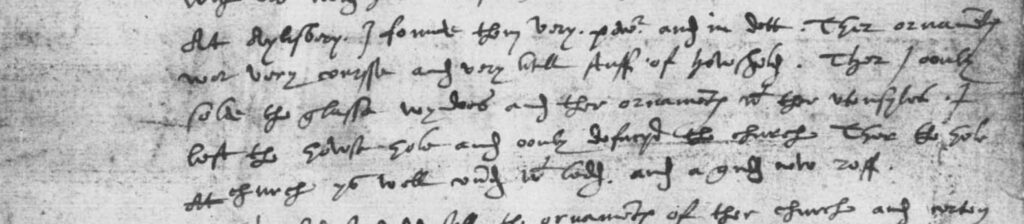 At Aylisbery. I founde them very. powr and in dett. Ther ornaments
wer very coursse and very litill stuff of howshold. Ther I oonly
solde the glasse wyndoes and ther ornaments wt ther utensyles. I
left the howse hole and oonly defacyd the church Ther the hole
At church ys well coverd wt ledd. and a good new roff.
the ornaments of ther church and certen